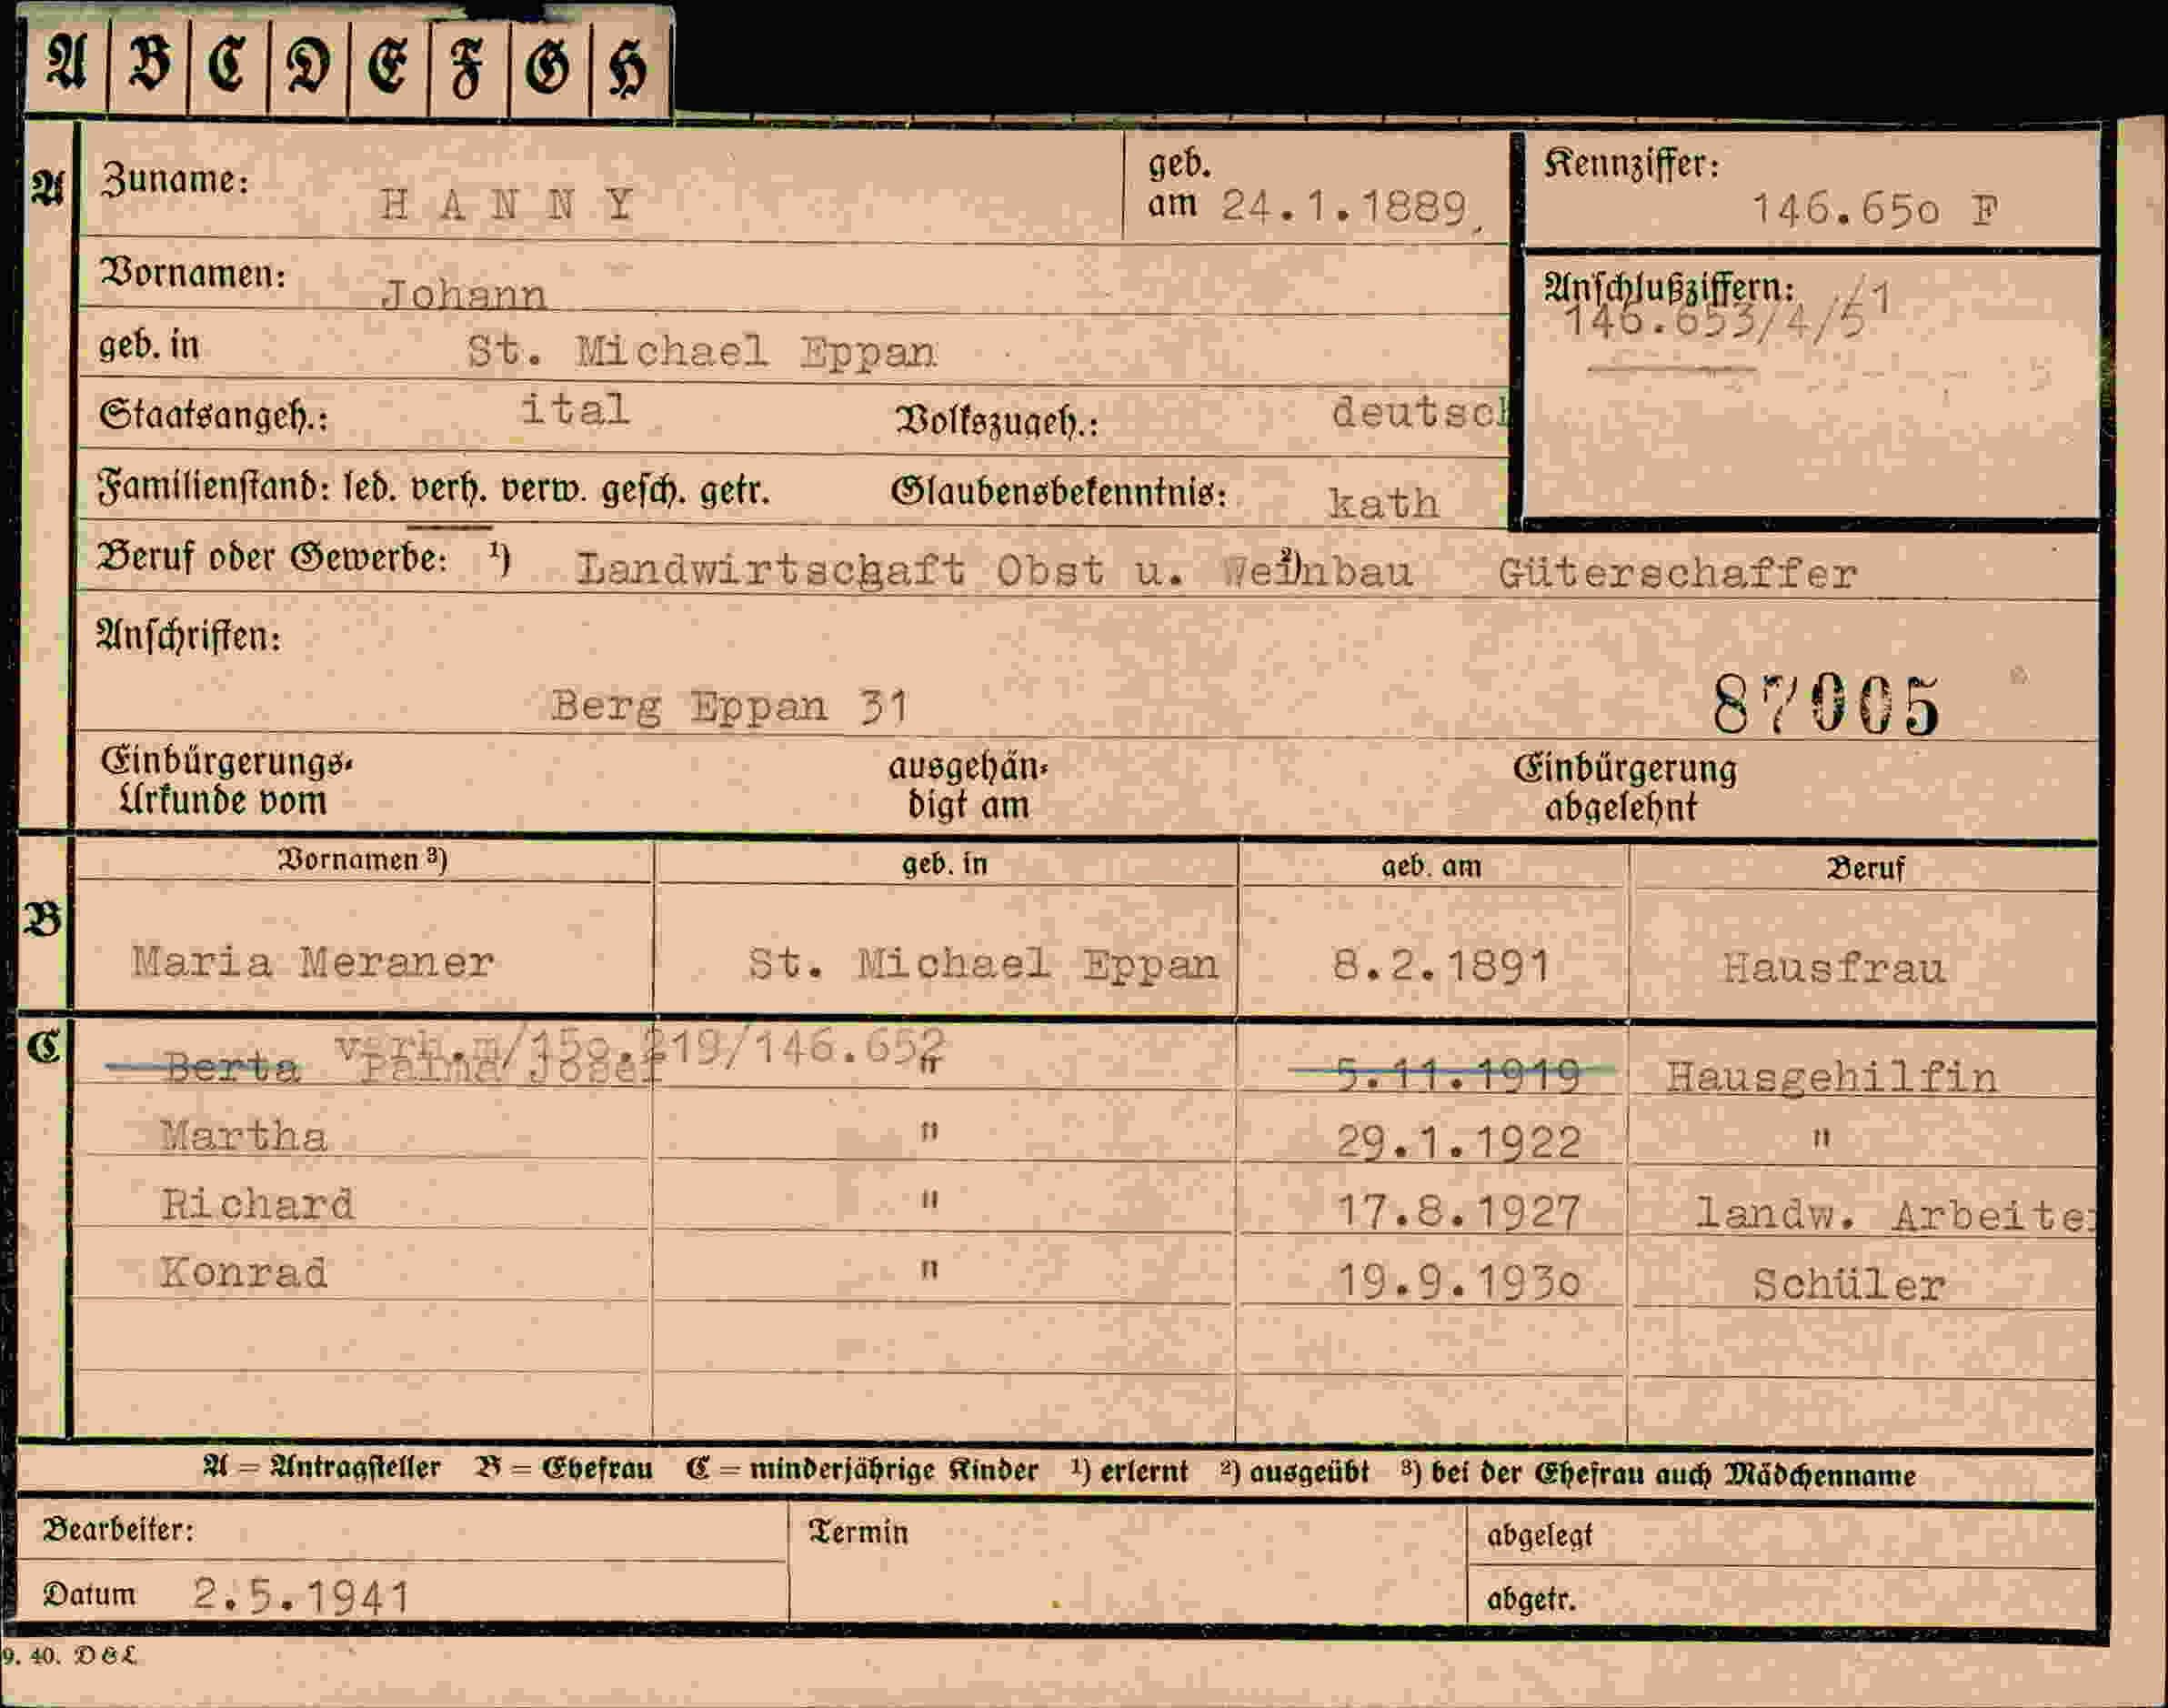 A B C D E F G H
A Zuname: HANNY geb. am 24.1.1889, Kennziffer: 146.650 F
Vornamen: Johann Anschlußziffern: /1
146.653/4/5
geb. in St. Michael Eppan
Staatsangeh.: ital Volkszugeh.: deutsch
Familienstand: led. verh. verw. gesch. getr. Glaubensbekenntnis: kath
Beruf oder Gewerbe: ¹) Landwirtschaft Obst u. Weinbau ²) Güterschaffer
Anschriften:
Berg Eppan 31 87005
Einbürgerungs- ausgehän- Einbürgerung
Urkunde vom digt am abgelehnt
Vornamen ³) geb. in geb. am Beruf
B
Maria Meraner St. Michael Eppan 8.2.1891 Hausfrau
C verh.m/150.219/146.652
Berta Josef " 5.11.1919 Hausgehilfin
Martha " 29.1.1922 "
Richard " 17.8.1927 landw. Arbeiter
Konrad " 19.9.1930 Schüler
A = Antragsteller B = Ehefrau C = minderjährige Kinder ¹) erlernt ²) ausgeübt ³) bei der Ehefrau auch Mädchenname
Bearbeiter: Termin abgelegt
Datum 2.5.1941 abgetr.
9. 40. D&L